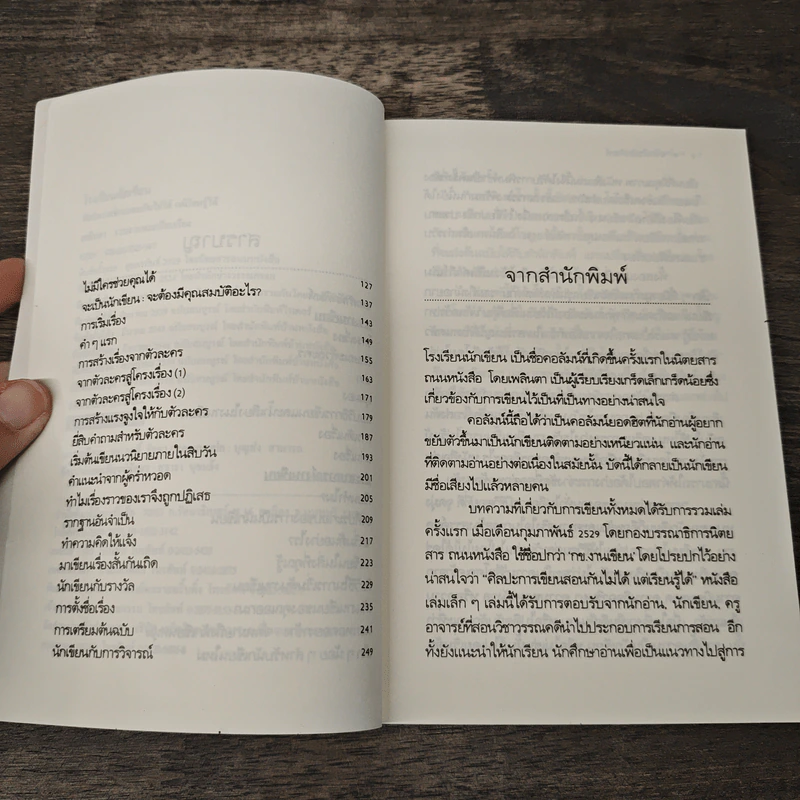 ไม่มีใครช่วยคุณได้ 127
จะเป็นนักเขียน : จะต้องมีคุณสมบัติอะไร? 137
การเริ่มเรื่อง 143
คำ ๆ แรก 149
การสร้างเรื่องจากตัวละคร 155
จากตัวละครสู่โครงเรื่อง (1) 163
จากตัวละครสู่โครงเรื่อง (2) 171
การสร้างแรงจูงใจให้กับตัวละคร 179
ยี่สิบคำถามสำหรับตัวละคร 187
เริ่มต้นเขียนนวนิยายภายในสิบวัน 193
คำแนะนำจากผู้คร่ำหวอด 201
ทำไมเรื่องราวของเราจึงถูกปฏิเสธ 205
รากฐานอันจำเป็น 209
ทำความคิดให้แจ้ง 217
มาเขียนเรื่องสั้นกันเถิด 223
นักเขียนกับรางวัล 229
การตั้งชื่อเรื่อง 235
การเตรียมต้นฉบับ 241
นักเขียนกับการวิจารณ์ 249
จากสำนักพิมพ์
โรงเรียนนักเขียน เป็นชื่อคอลัมน์ที่เกิดขึ้นครั้งแรกในนิตยสาร
ถนนหนังสือ โดยเพลินตา เป็นผู้เรียบเรียงเกร็ดเล็กเกร็ดน้อยซึ่ง
เกี่ยวข้องกับการเขียนไว้เป็นที่เป็นทางอย่างน่าสนใจ
คอลัมน์นี้ถือได้ว่าเป็นคอลัมน์ยอดฮิตที่นักอ่านผู้อยาก
ขยับตัวขึ้นมาเป็นนักเขียนติดตามอย่างเหนียวแน่น และนักอ่าน
ที่ติดตามอ่านอย่างต่อเนื่องในสมัยนั้น บัดนี้ได้กลายเป็นนักเขียน
มีชื่อเสียงไปแล้วหลายคน
บทความที่เกี่ยวกับการเขียนทั้งหมดได้รับการรวมเล่ม
ครั้งแรก เมื่อเดือนกุมภาพันธ์ 2529 โดยกองบรรณาธิการนิตย
สาร ถนนหนังสือ ใช้ชื่อปกว่า 'กข.งานเขียน' โดยโปรยปกไว้อย่าง
น่าสนใจว่า "ศิลปะการเขียนสอนกันไม่ได้ แต่เรียนรู้ได้" หนังสือ
เล่มเล็ก ๆ เล่มนี้ได้รับการตอบรับจากนักอ่าน, นักเขียน, ครู
อาจารย์ที่สอนวิชาวรรณคดีนำไปประกอบการเรียนการสอน อีก
ทั้งยังแนะนำให้นักเรียน นักศึกษาอ่านเพื่อเป็นแนวทางไปสู่การ